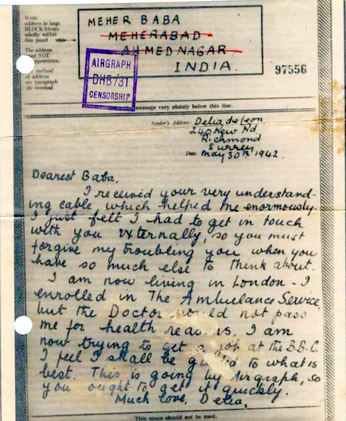 Write
address in large
BLOCK letters
wholly within
this panel
The address
NOT
MEHER BABA
MEHERABAD
AHMEDNAGAR
INDIA.
AIRGRAPH
DHB/31
CENSORSHIP
97556
message very plainly below this line.
Sender's Address Delia deLeon
240 Kew Rd
Richmond
Surrey
Date May 30th 1942.
Dearest Baba,
I received your very understand-
ing cable, which helped me enormously.
I just felt I had to get in touch
with you externally, so you must
forgive my troubling you when you
have so much else to think about.
I am now living in London - I
enrolled in The Ambulance Service
but the Doctor would not pass
me for health reasons. I am
now trying to get a job at the B.B.C.
I feel I shall be guided to what is
best. This is going by Airgraph, so
you ought to get it quickly.
Much love, Delia.
This space should not be used.